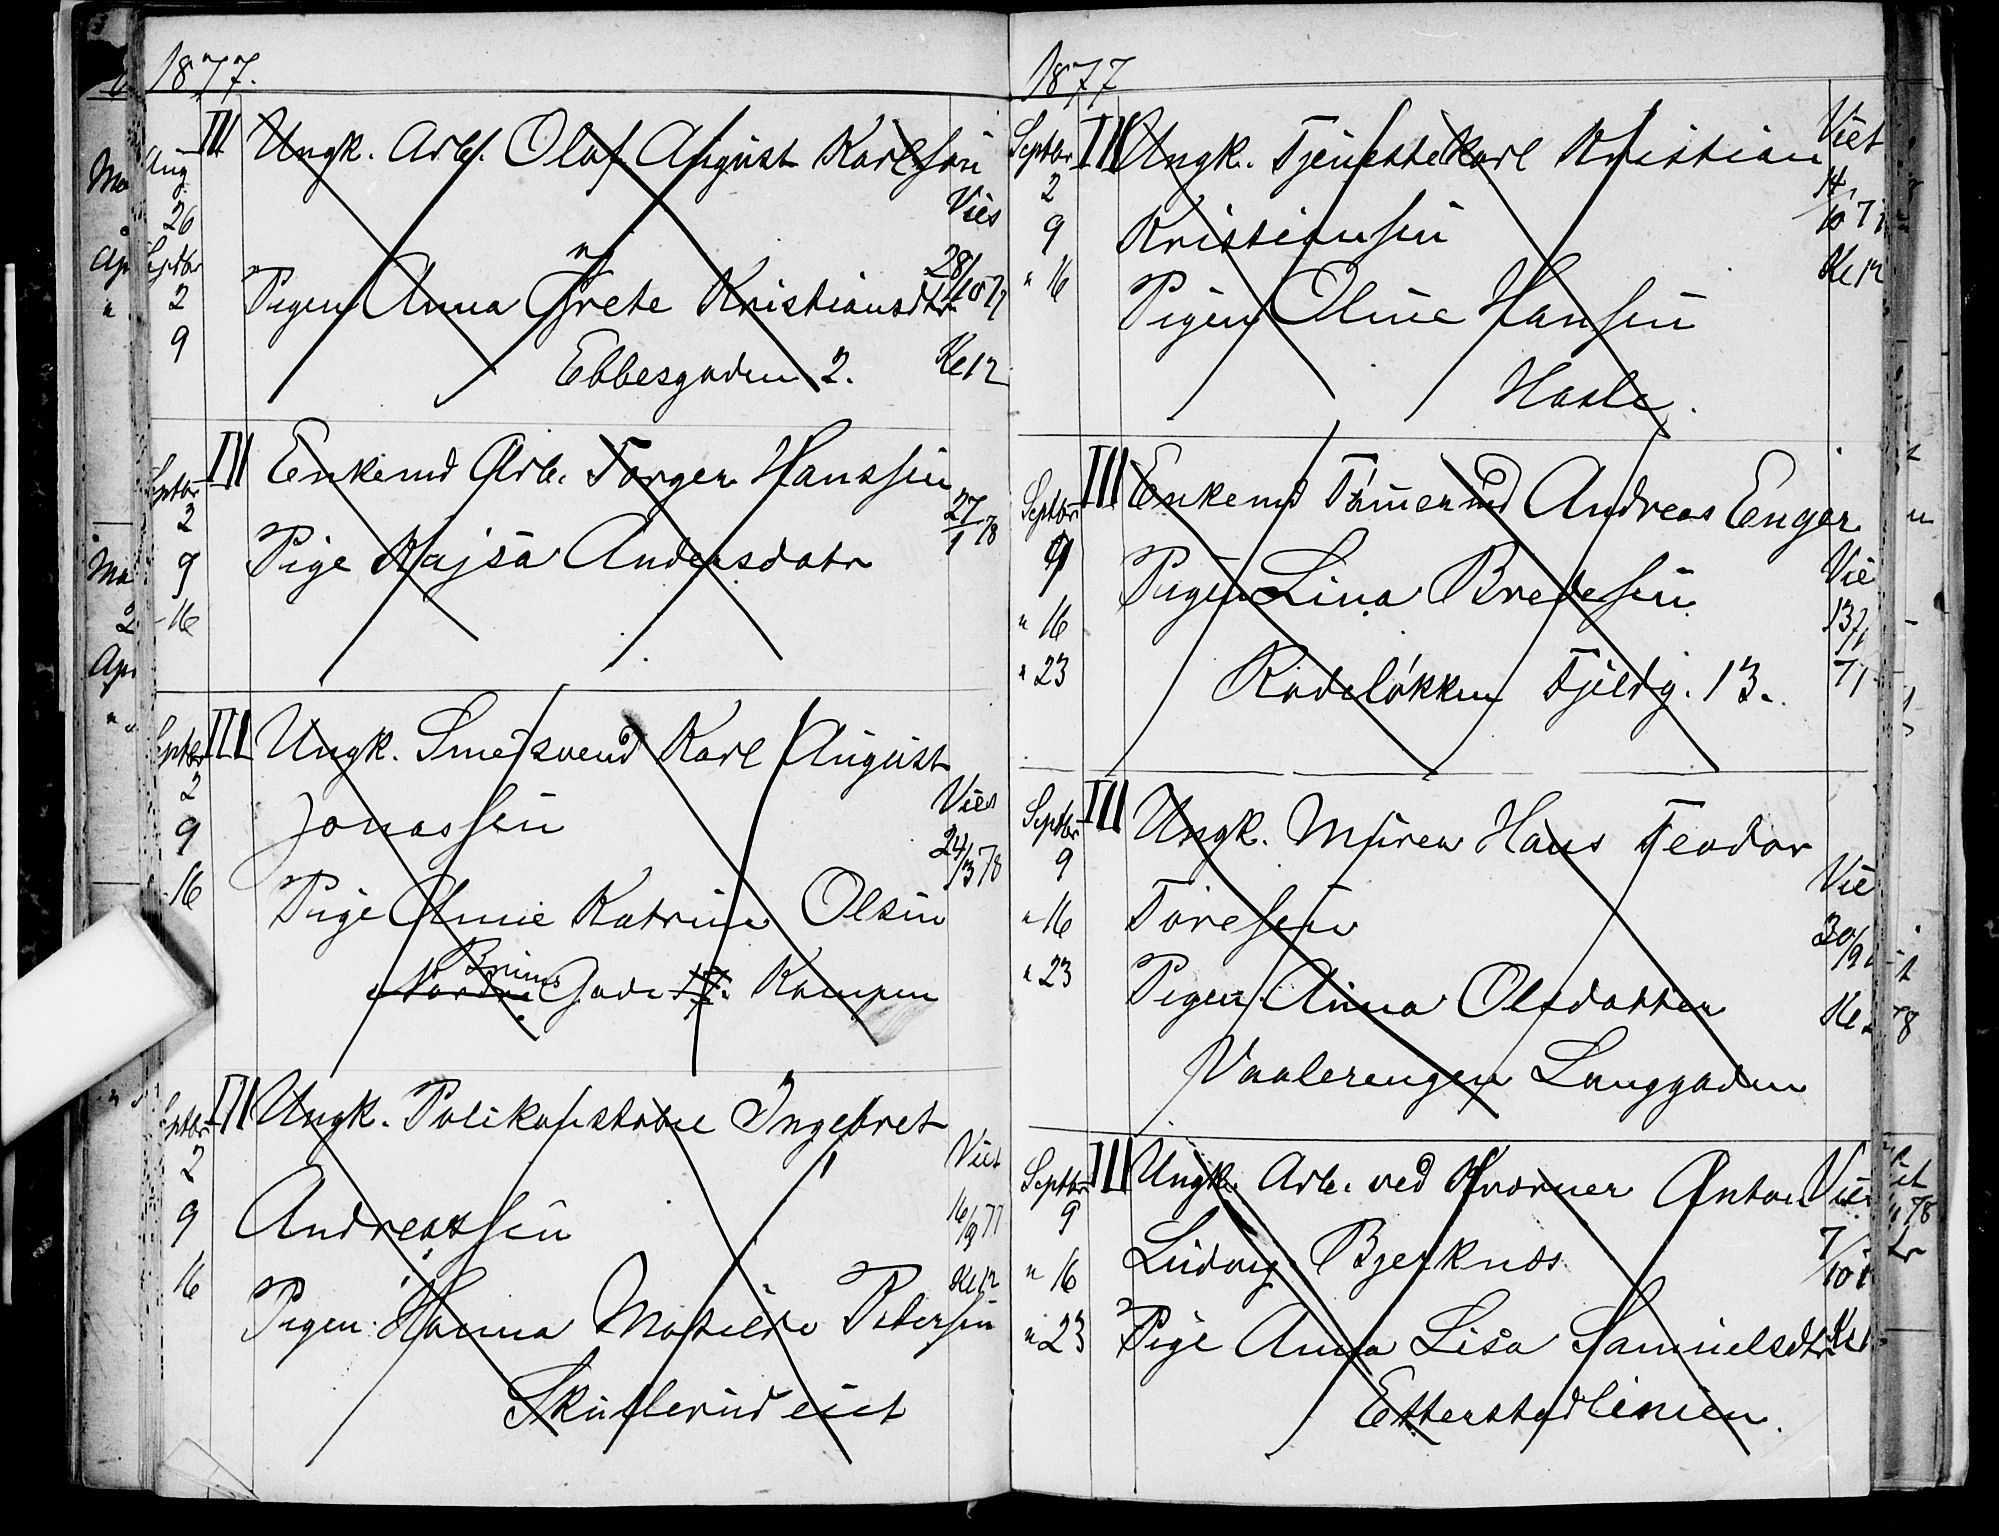 1877.
Aug. 26 III Ungk. Arb. Olaf August Karlsen
Septbr 2 Pigen Anna Grete Kristiansdtr 28/10 77
9 Ebbesgaden 2. Kl 12
Septbr 2 III Enkemd Arb. Torger Hanssen
9 Pige Kajsa Andersdatr 27/1 78
-16
Septbr 2 III Ungk. Smedsvend Karl August
9 Jonassen Viet 24/3 78
-16 Pige Oline Katrine Olsen
Nordre Gade 17. Kampen
Septbr 2 III Ungk. Politikonstabel Ingebret
9 Andreassen Viet 16/9 77
16 Pigen Hanna Matilde Petersen Kl 12
Skullerudeiet
1877
Septbr 2 III Ungk. Tjenestekarl Kristian Viet
9 Kristiansen 14/10 77
" 16 Pigen Oline Hansen Kl 12
Hasle.
Septbr 9 III Enkemd Tømermd Andreas Enger
" 16 Pigen Lina Bredesen Vie 13/
" 23 Rodeløkken Fjeldg. 13.
Septbr 9 III Ungk. Murer Hans Teodor
" 16 Toresen Vie 30/9
" 23 Pigen Anna Olsdatter Kl
Vaalerengen Langgaden
Septbr 9 III Ungk. Arb. ved Kværner Anton Vie
" 16 Ludvig Bjerknæs 7/10
" 23 Pige Anna Lisa Samuelsdtr Kl
Etterstadlinien.